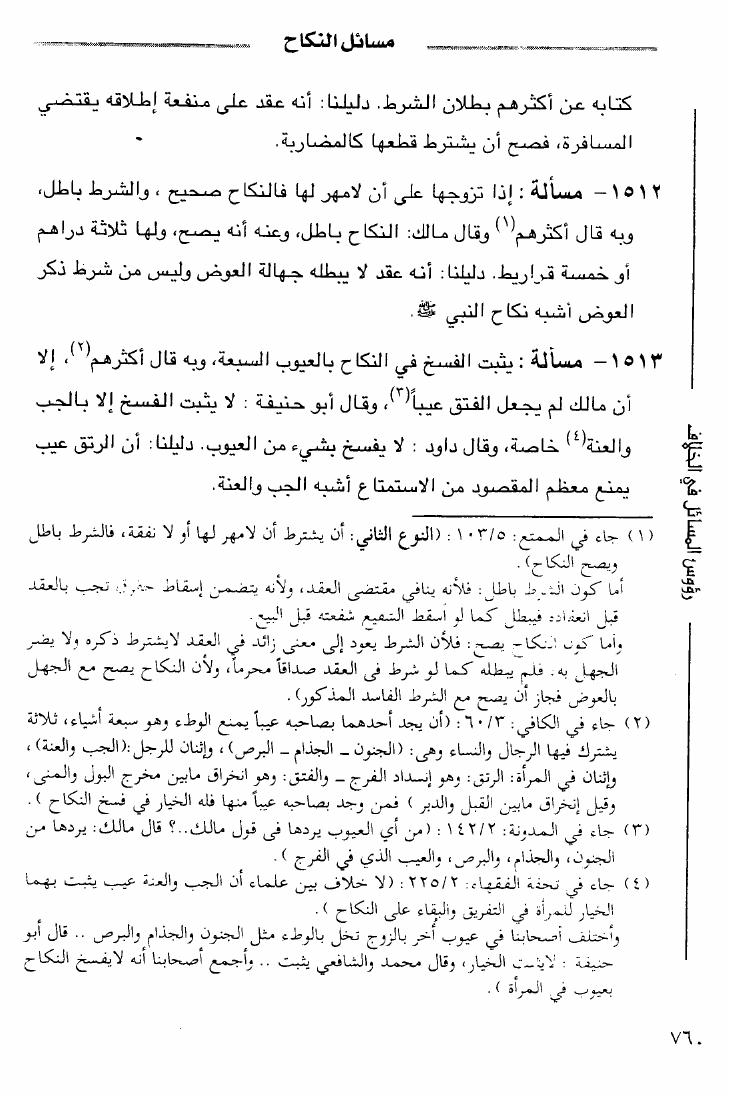 مسائل النكاح
كتابه عن أكثرهم بطلان الشرط. دليلنا: أنه عقد على منفعة إطلاقه يقتضي
المسافرة، فصح أن يشترط قطعها كالمضاربة.
١٥١٢- مسألة: إذا تزوجها على أن لامهر لها فالنكاح صحيح ، والشرط باطل،
وبه قال أكثرهم(١) وقال مالك: النكاح باطل، وعنه أنه يصح، ولها ثلاثة دراهم
أو خمسة قراريط. دليلنا: أنه عقد لا يبطله جهالة العوض وليس من شرط ذكر
العوض أشبه نكاح النبي ﷺ.
١٥١٣- مسألة: يثبت الفسخ في النكاح بالعيوب السبعة، وبه قال أكثرهم(٢)، إلا
أن مالك لم يجعل الفتق عيباً(٣)، وقال أبو حنيفة : لا يثبت الفسخ إلا بالجب
والعنة(٤) خاصة، وقال داود : لا يفسخ بشيء من العيوب. دليلنا: أن الرتق عيب
يمنع معظم المقصود من الاستمتاع أشبه الجب والعنة.
(١) جاء في الممتع: ١٠٣/٥ : (النوع الثاني: أن يشترط أن لامهر لها أو لا نفقة، فالشرط باطل
ويصح النكاح).
أما كون الشرط باطل: فلأنه ينافي مقتضى العقد، ولأنه يتضمن إسقاط حقوق تجب بالعقد
قبل انعقاده فيبطل كما لو أسقط الشفيع شفعته قبل البيع.
وأما كون النكاح يصح: فلأن الشرط يعود إلى معنى زائد في العقد لايشترط ذكره ولا يضر
الجهل به. فلم يبطله كما لو شرط فى العقد صداقاً محرماً، ولأن النكاح يصح مع الجهل
بالعوض فجاز أن يصح مع الشرط الفاسد المذكور).
(٢) جاء في الكافي: ٦٠/٣: (أن يجد أحدهما بصاحبه عيباً يمنع الوطء وهو سبعة أشياء، ثلاثة
يشترك فيها الرجال والنساء وهى: (الجنون ـ الجذام ـ البرص)، وإثنان للرجل:(الجب والعنة)،
وإثنان في المرأة: الرتق: وهو إنسداد الفرج ـ والفتق: وهو انخراق مابين مخرج البول والمنى،
وقيل إنخراق مابين القبل والدبر ) فمن وجد بصاحبه عيباً منها فله الخيار في فسخ النكاح ).
(٣) جاء في المدونة: ١٤٢/٢ : (من أي العيوب يردها فى قول مالك..؟ قال مالك: يردها من
الجنون، والجذام، والبرص، والعيب الذي في الفرج ).
(٤) جاء في تحفة الفقهاء: ٢٢٥/٢ : (لا خلاف بين علماء أن الجب والعنة عيب يثبت بهما
الخيار للمرأة في التفريق والبقاء على النكاح ).
وأختلف أصحابنا في عيوب أخر بالزوج تخل بالوطء مثل الجنون والجذام والبرص .. قال أبو
حنيفة : لايثبت الخيار، وقال محمد والشافعي يثبت .. وأجمع أصحابنا أنه لايفسخ النكاح
بعيوب في المرأة ).
رؤوس المسائل في الخلاف
٧٦٠